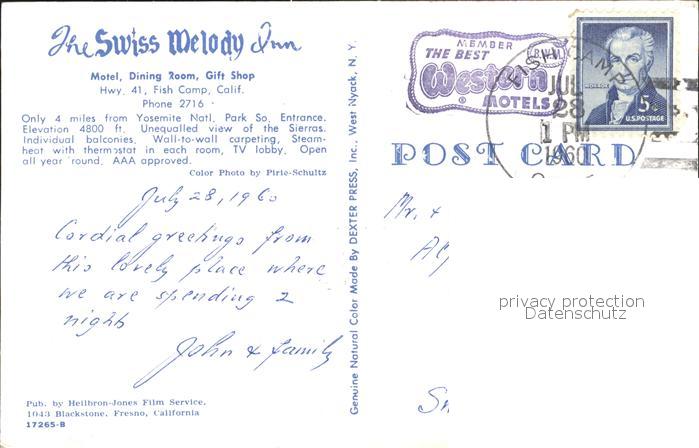 The Swiss Melody Inn
Motel, Dining Room, Gift Shop
Hwy. 41, Fish Camp, Calif.
Phone 2716
Only 4 miles from Yosemite Natl. Park So. Entrance.
Elevation 4800 ft. Unequalled view of the Sierras.
Individual balconies. Wall-to-wall carpeting, Steam-
heat with thermostat in each room, TV lobby. Open
all year 'round. AAA approved.
Color Photo by Pirie-Schultz
July 28, 1960
Cordial greetings from
this lovely place where
we are spending 2
nights
John & family
Pub. by Heilbron-Jones Film Service,
1043 Blackstone, Fresno, California
17265-B
Genuine Natural Color Made By DEXTER PRESS, Inc., West Nyack, N. Y.
MEMBER
THE BEST
Western
® MOTELS
FISH CAMP
JUL
28
1 PM
1960
MONROE
5¢
U.S. POSTAGE
POST CARD
Mr. &
privacy protection
Datenschutz